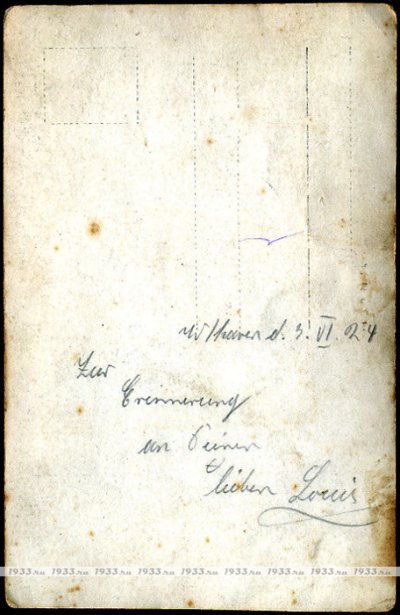 W/haven d. 3. VI. 24
Zur
Erinnerung
an Deinen
lieben Louis
1933.ru 1933.ru 1933.ru 1933.ru 1933.ru 1933.ru 1933.ru 1933.ru 1933.ru